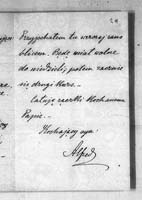 Przyjechałem tu wczoraj rano
Będę miał wolne
do niedzieli, potem zacznie
się drugi kurs.
Całuję rączki Kochanemu
Papie.
Kochający syn
Alfred